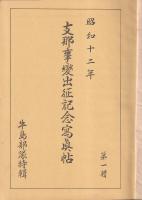 昭和十二年
支那事變出征記念寫眞帖
第一輯
牛島部隊特輯